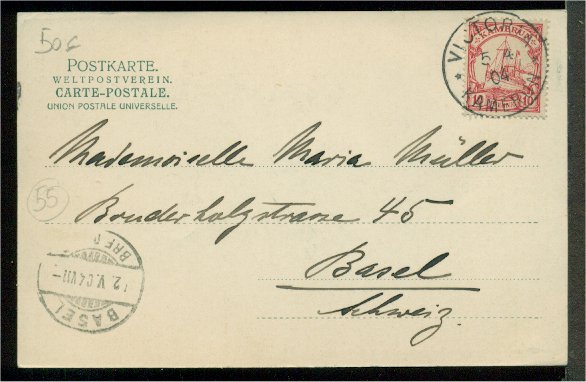 50c
POSTKARTE.
WELTPOSTVEREIN.
CARTE-POSTALE.
UNION POSTALE UNIVERSELLE.
KAMERUN
VICTORIA
5 4
04
* KAMERUN *
Mademoiselle Maria Müller
55
Bruderholzstrasse 45
Basel
Schweiz.
BRF.
2.V.04.VII-
BASEL